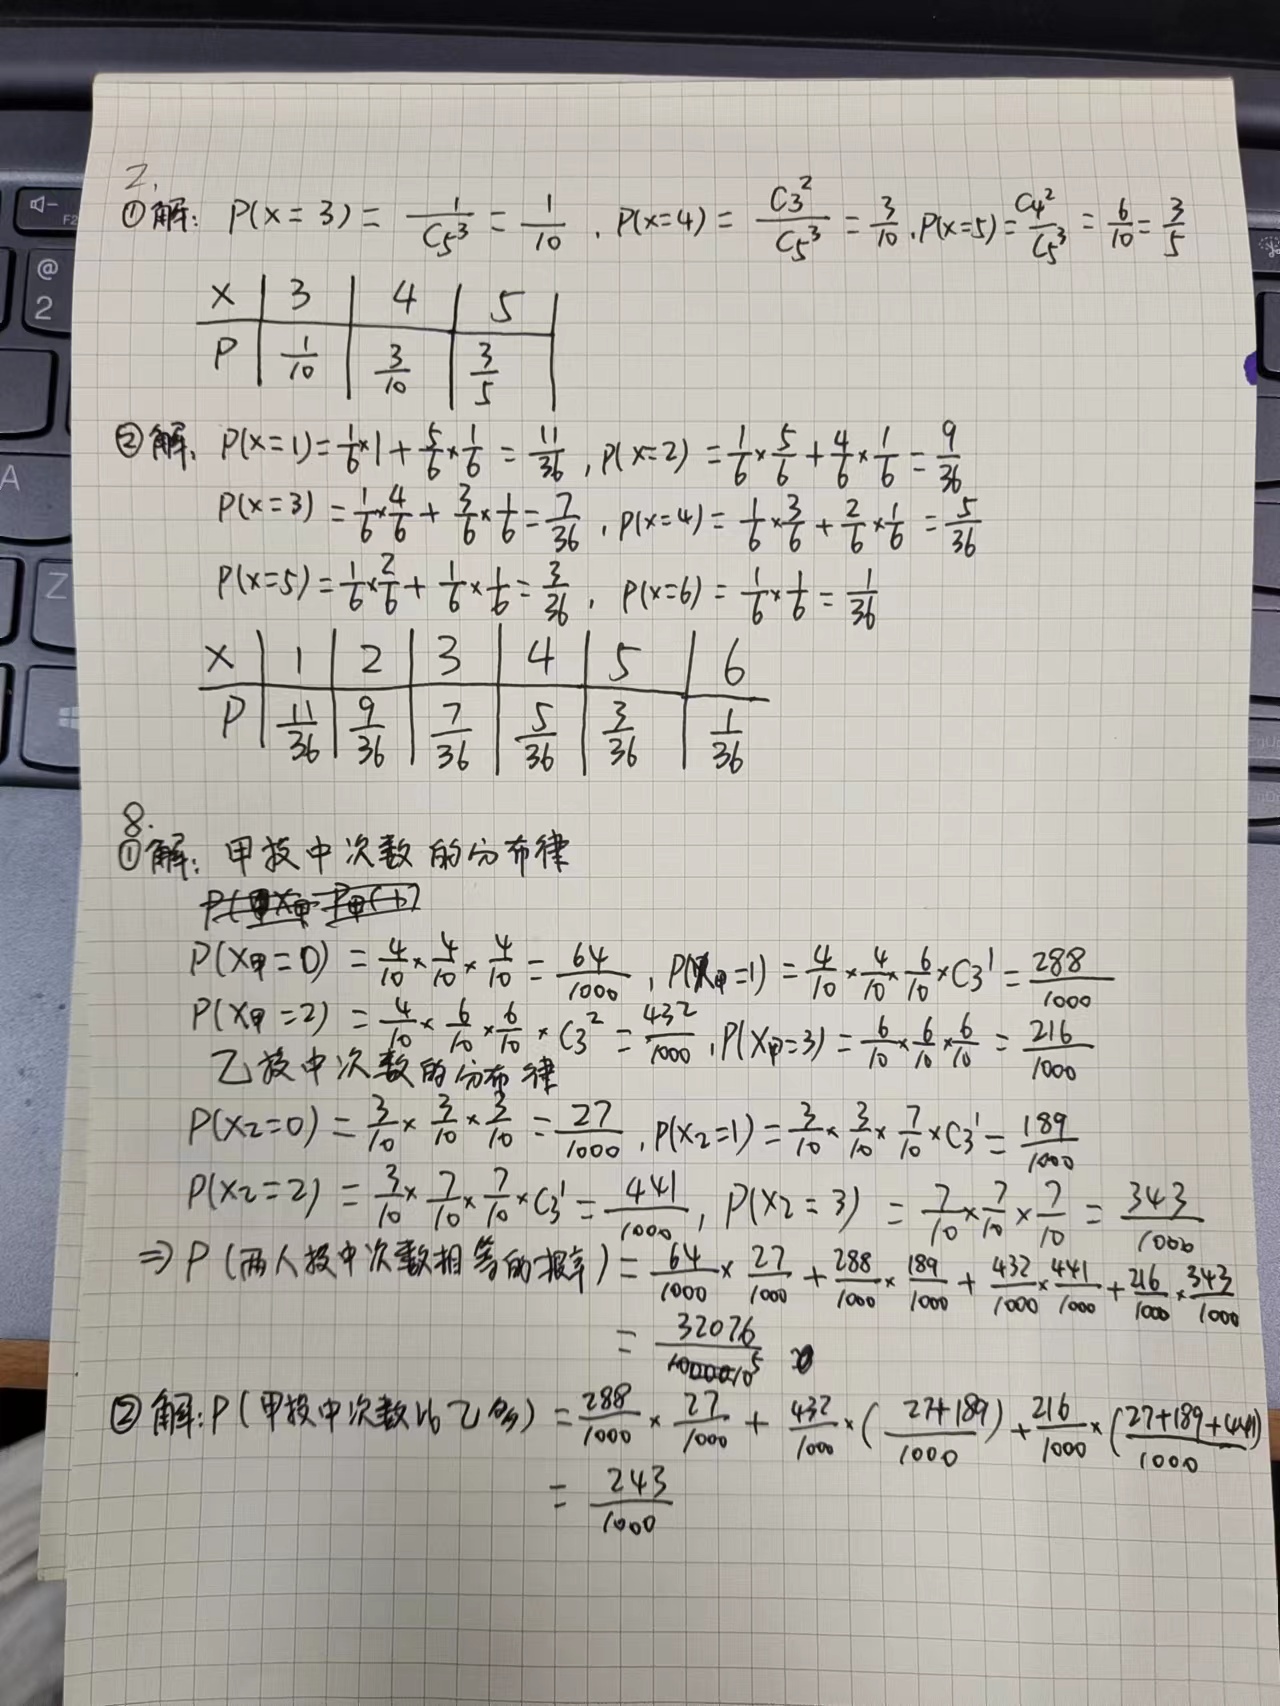 2.
①解: P(X=3) = 1/C5^3 = 1/10 , P(X=4) = C3^2/C5^3 = 3/10 , P(X=5) = C4^2/C5^3 = 6/10 = 3/5
X | 3 | 4 | 5
P | 1/10 | 3/10 | 3/5
②解, P(X=1) = 1/6×1 + 5/6×1/6 = 11/36 , P(X=2) = 1/6×5/6 + 4/6×1/6 = 9/36
P(X=3) = 1/6×4/6 + 3/6×1/6 = 7/36 , P(X=4) = 1/6×3/6 + 2/6×1/6 = 5/36
P(X=5) = 1/6×2/6 + 1/6×1/6 = 3/36 , P(X=6) = 1/6×1/6 = 1/36
X | 1 | 2 | 3 | 4 | 5 | 6
P | 11/36 | 9/36 | 7/36 | 5/36 | 3/36 | 1/36
8.
①解: 甲投中次数的分布律
P(X甲=0) = 4/10×4/10×4/10 = 64/1000 , P(X甲=1) = 4/10×4/10×6/10×C3^1 = 288/1000
P(X甲=2) = 4/10×6/10×6/10×C3^2 = 432/1000 , P(X甲=3) = 6/10×6/10×6/10 = 216/1000
乙投中次数的分布律
P(X乙=0) = 3/10×3/10×3/10 = 27/1000 , P(X乙=1) = 3/10×3/10×7/10×C3^1 = 189/1000
P(X乙=2) = 3/10×7/10×7/10×C3^1 = 441/1000 , P(X乙=3) = 7/10×7/10×7/10 = 343/1000
⇒ P(两人投中次数相等的概率) = 64/1000×27/1000 + 288/1000×189/1000 + 432/1000×441/1000 + 216/1000×343/1000
= 32076/10^5
②解: P(甲投中次数比乙多) = 288/1000×27/1000 + 432/1000×(27+189/1000) + 216/1000×(27+189+441/1000)
= 243/1000
F2
@
2
A
Z